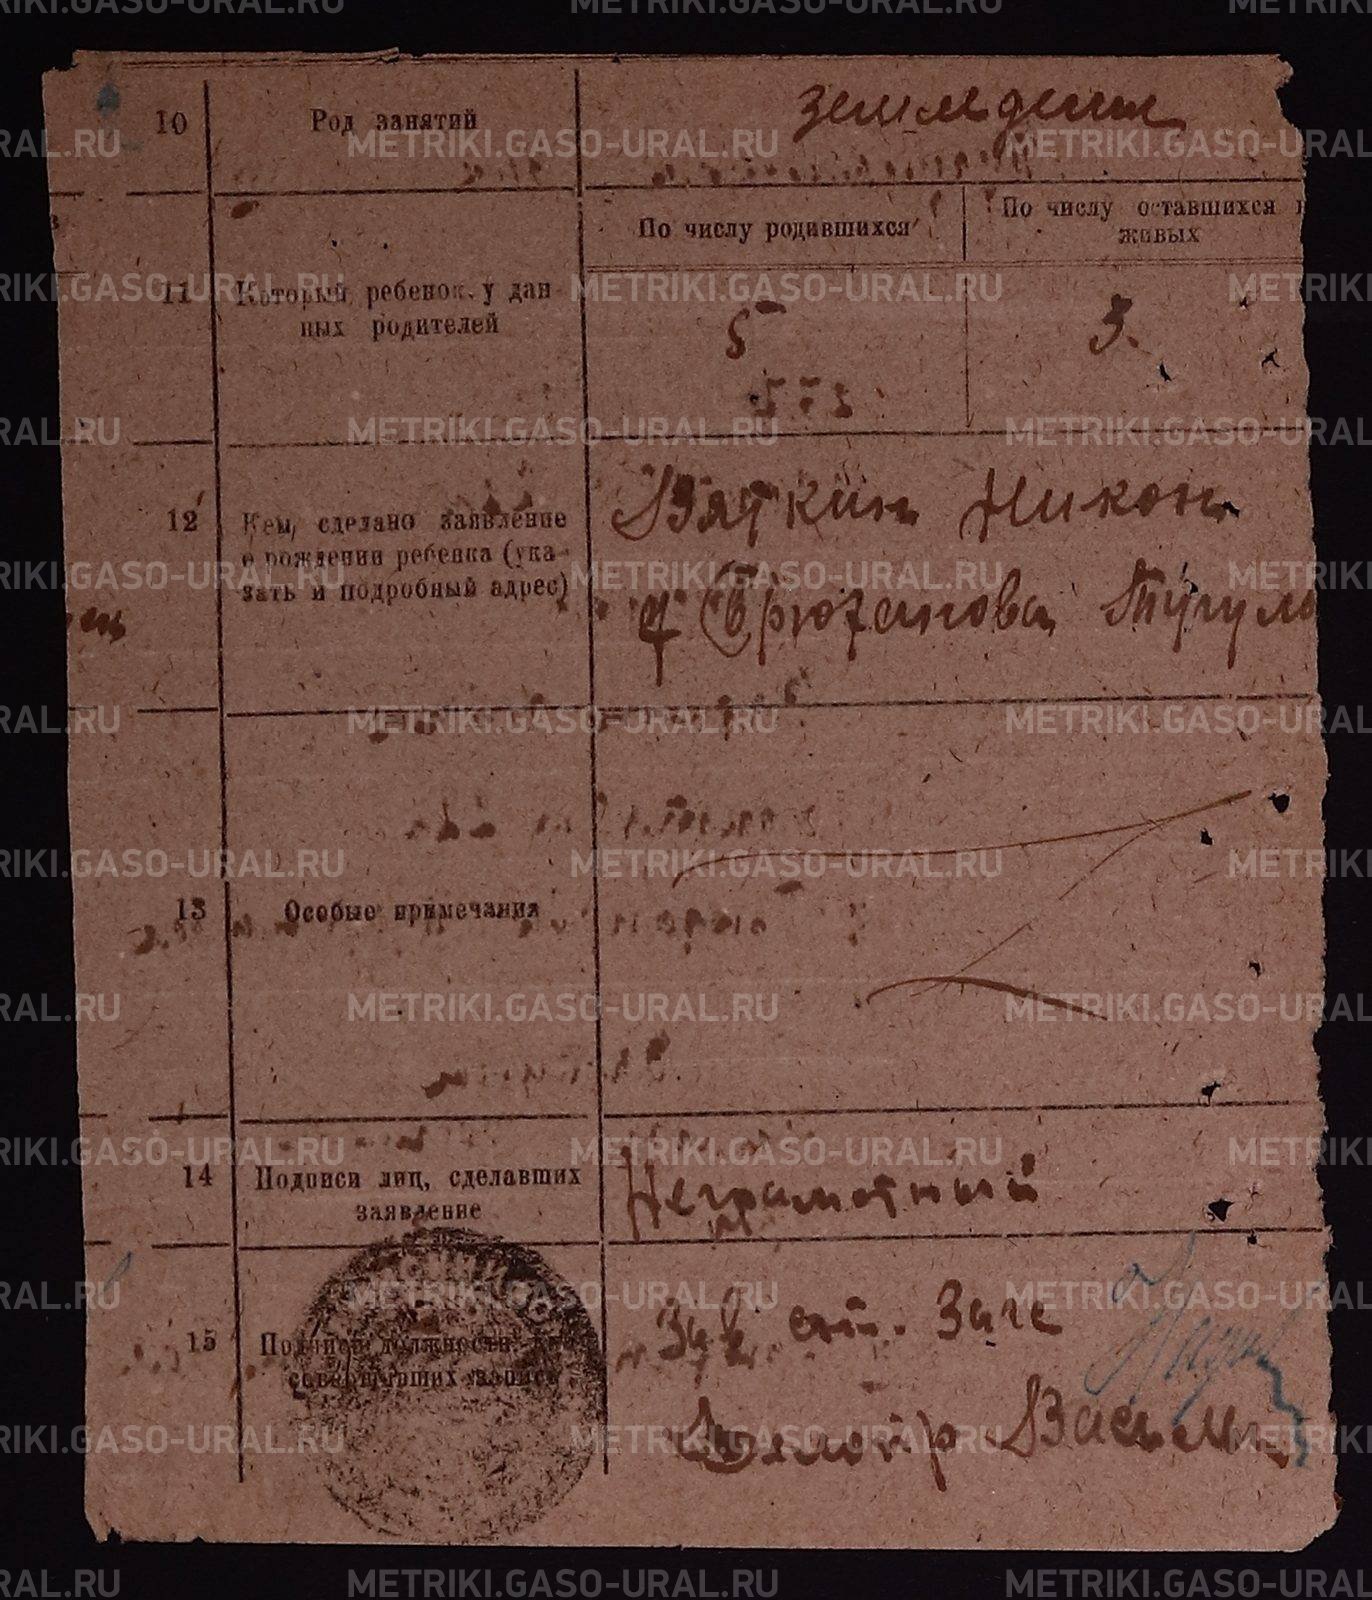 10 Род занятий земледелие
По числу родившихся По числу оставшихся
живых
11 Который ребенок у дан-
ных родителей
5 3.
12 Кем сделано заявление
о рождении ребенка (ука-
зать и подробный адрес)
Вяткин Никон
д Брюханова Тугул
13 Особые примечания
14 Подписи лиц, сделавших
заявление
Неграмотный
15 Подписи должностн.
совершивших запись
Зав стл. Загс
METRIKI.GASO-URAL.RU